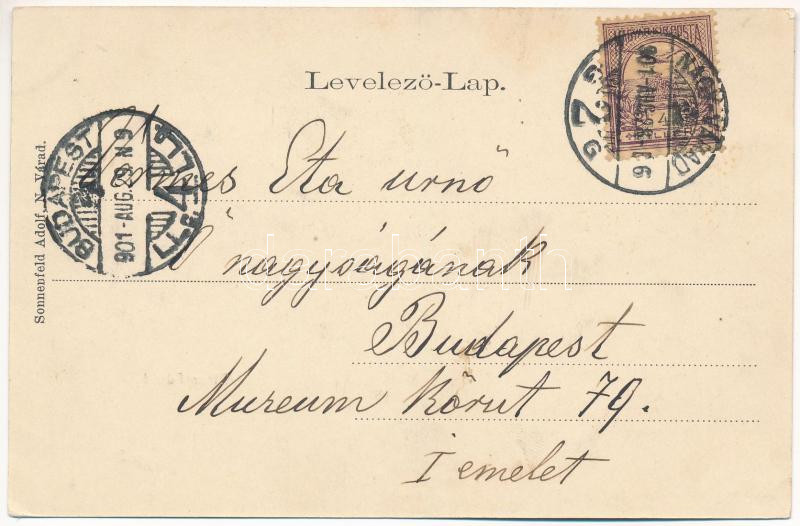 Levelező-Lap.
MAGYAR KIR. POSTA
NAGYVÁRAD
901-AUG.
BUDAPEST
901-AUG.29 N 9
Vermes Eta urnő
Ő nagyságának
Budapest
Muzeum Körut 79.
I emelet
Sonnenfeld Adolf, N.-Várad.
darabanth